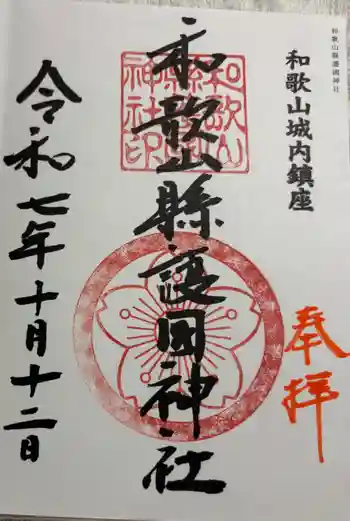 和歌山縣護國神社
和歌山城内鎮座
奉拝
和歌山縣護國神社
和歌山縣神社印
令和七年十月十二日